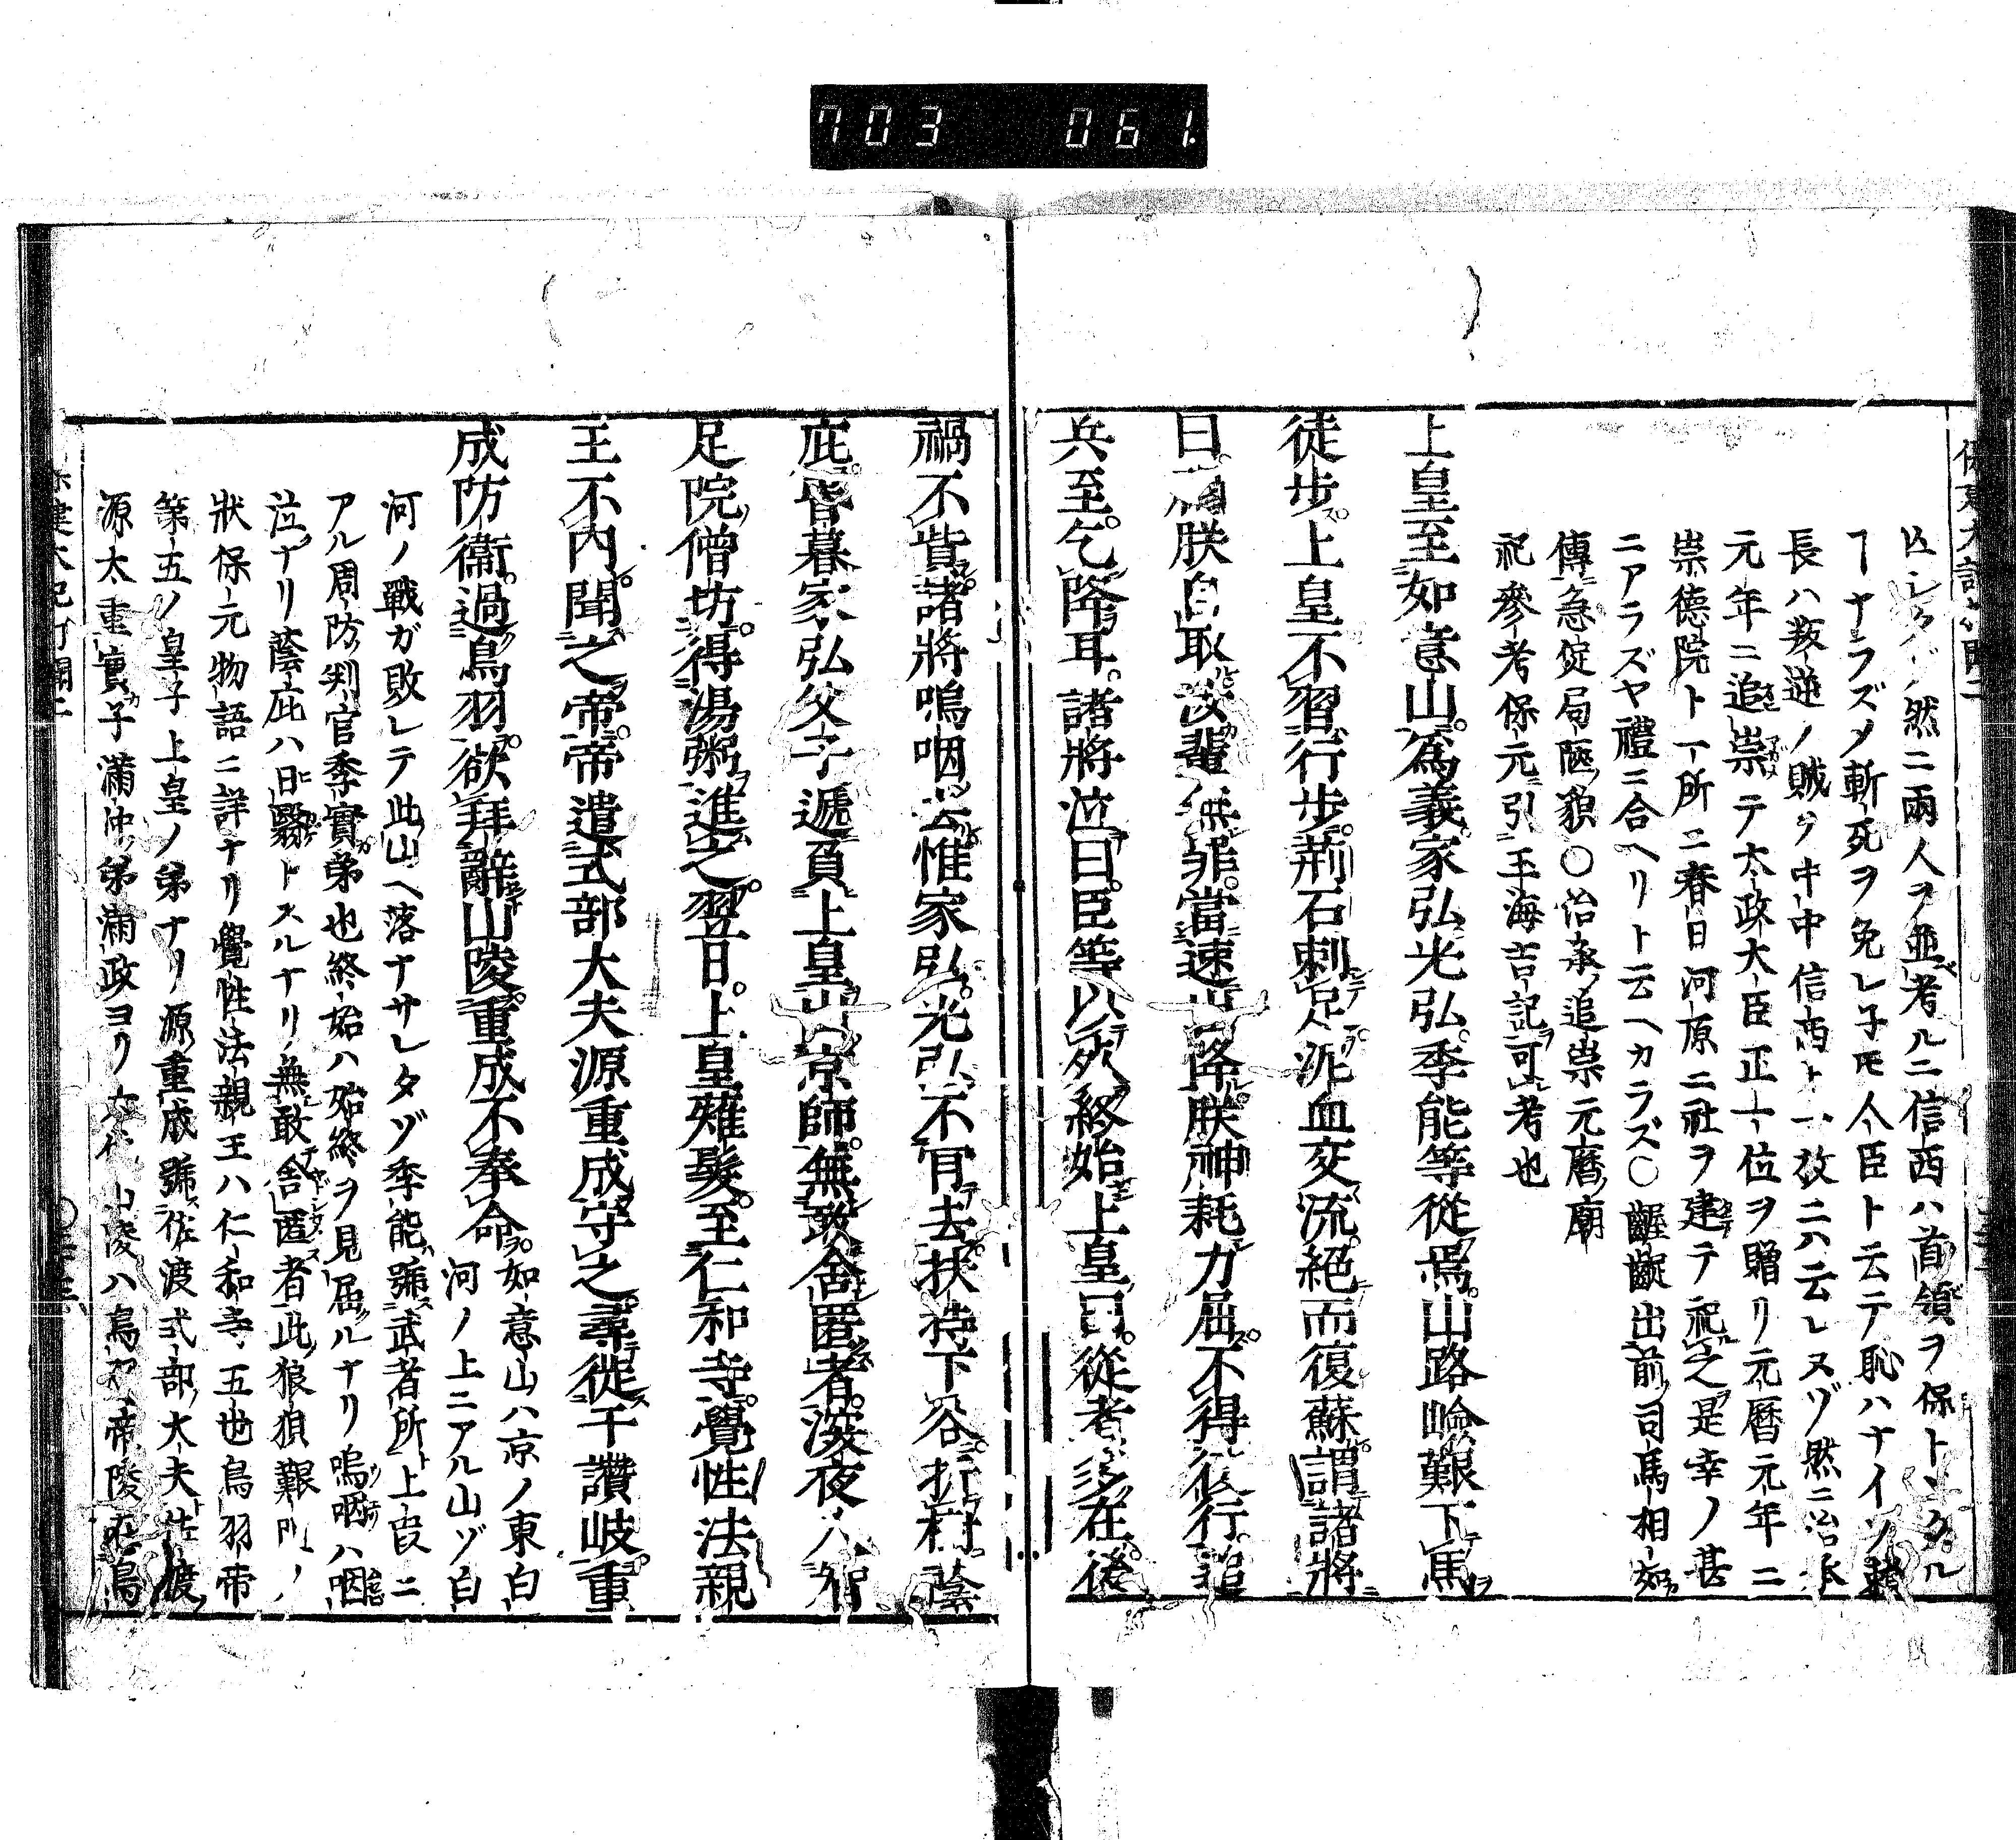 703 061
レタゾ然ニ兩人ヲ並考ルニ信西ハ首領ヲ保トシタル
ナラズメ斬死ヲ免レ子モ人臣ト云テ恥ハナイソ
長ハ叛逆ノ賊ヲ中中信西ト一孜ニハ云レヌゾ然ニ治承
元年ニ追崇テ太政大臣正一位ヲ贈リ元暦元年ニ
崇德院ト一所ニ春日河原ニ社ヲ建テ祀之是幸ノ甚
ニアラズヤ禮ニ合ヘリト云ヘカラズ○齷齪出前司馬相如
傳急促局陋貌○治承追崇元暦廟
祀參考保元引玉海吉記可考也
上皇至如意山爲義家弘光弘季能等從焉山路嶮艱下馬
徒步上皇不習行步荊石刺足泥血交流絕而復蘇謂諸將
曰禍朕自取汝輩無罪當速出降朕神耗力屈不得復行追
兵至乞降耳諸將泣曰臣等以死終始上皇曰從者多在後
禍不貲諸將嗚咽去惟家弘光弘不肯去扶持下谷折樹蔭
庇昏暮家弘父子遞負上皇出京師無敢舍匿者深夜入知
足院僧坊得湯粥進之翌日上皇薙髮至仁和寺覺性法親
王不內聞之帝帝遣式部大夫源重成守之尋徙于讚岐重
成防衞過鳥羽欲拜辭山陵重成不奉命如意山ハ京ノ東白
河ノ上ニアル山ゾ白
河ノ戰ガ敗レテ此山ヘ落ナサレタゾ季能號武者所上皇ニ
アル周防判官季實弟也終始ハ始終ヲ見屆ルナリ嗚咽ハ咽
泣ナリ蔭庇ハ日翳トスルナリ無敢舍匿者此狼狽艱難ノ
狀保元物語ニ詳ナリ覺性法親王ハ仁和寺五也鳥羽帝
第五ノ皇子上皇ノ弟ナリ源重成號佐渡式部大夫佐渡
源太重實子滿仲弟滿政ヨリ六代山陵ハ鳥羽帝陵在鳥